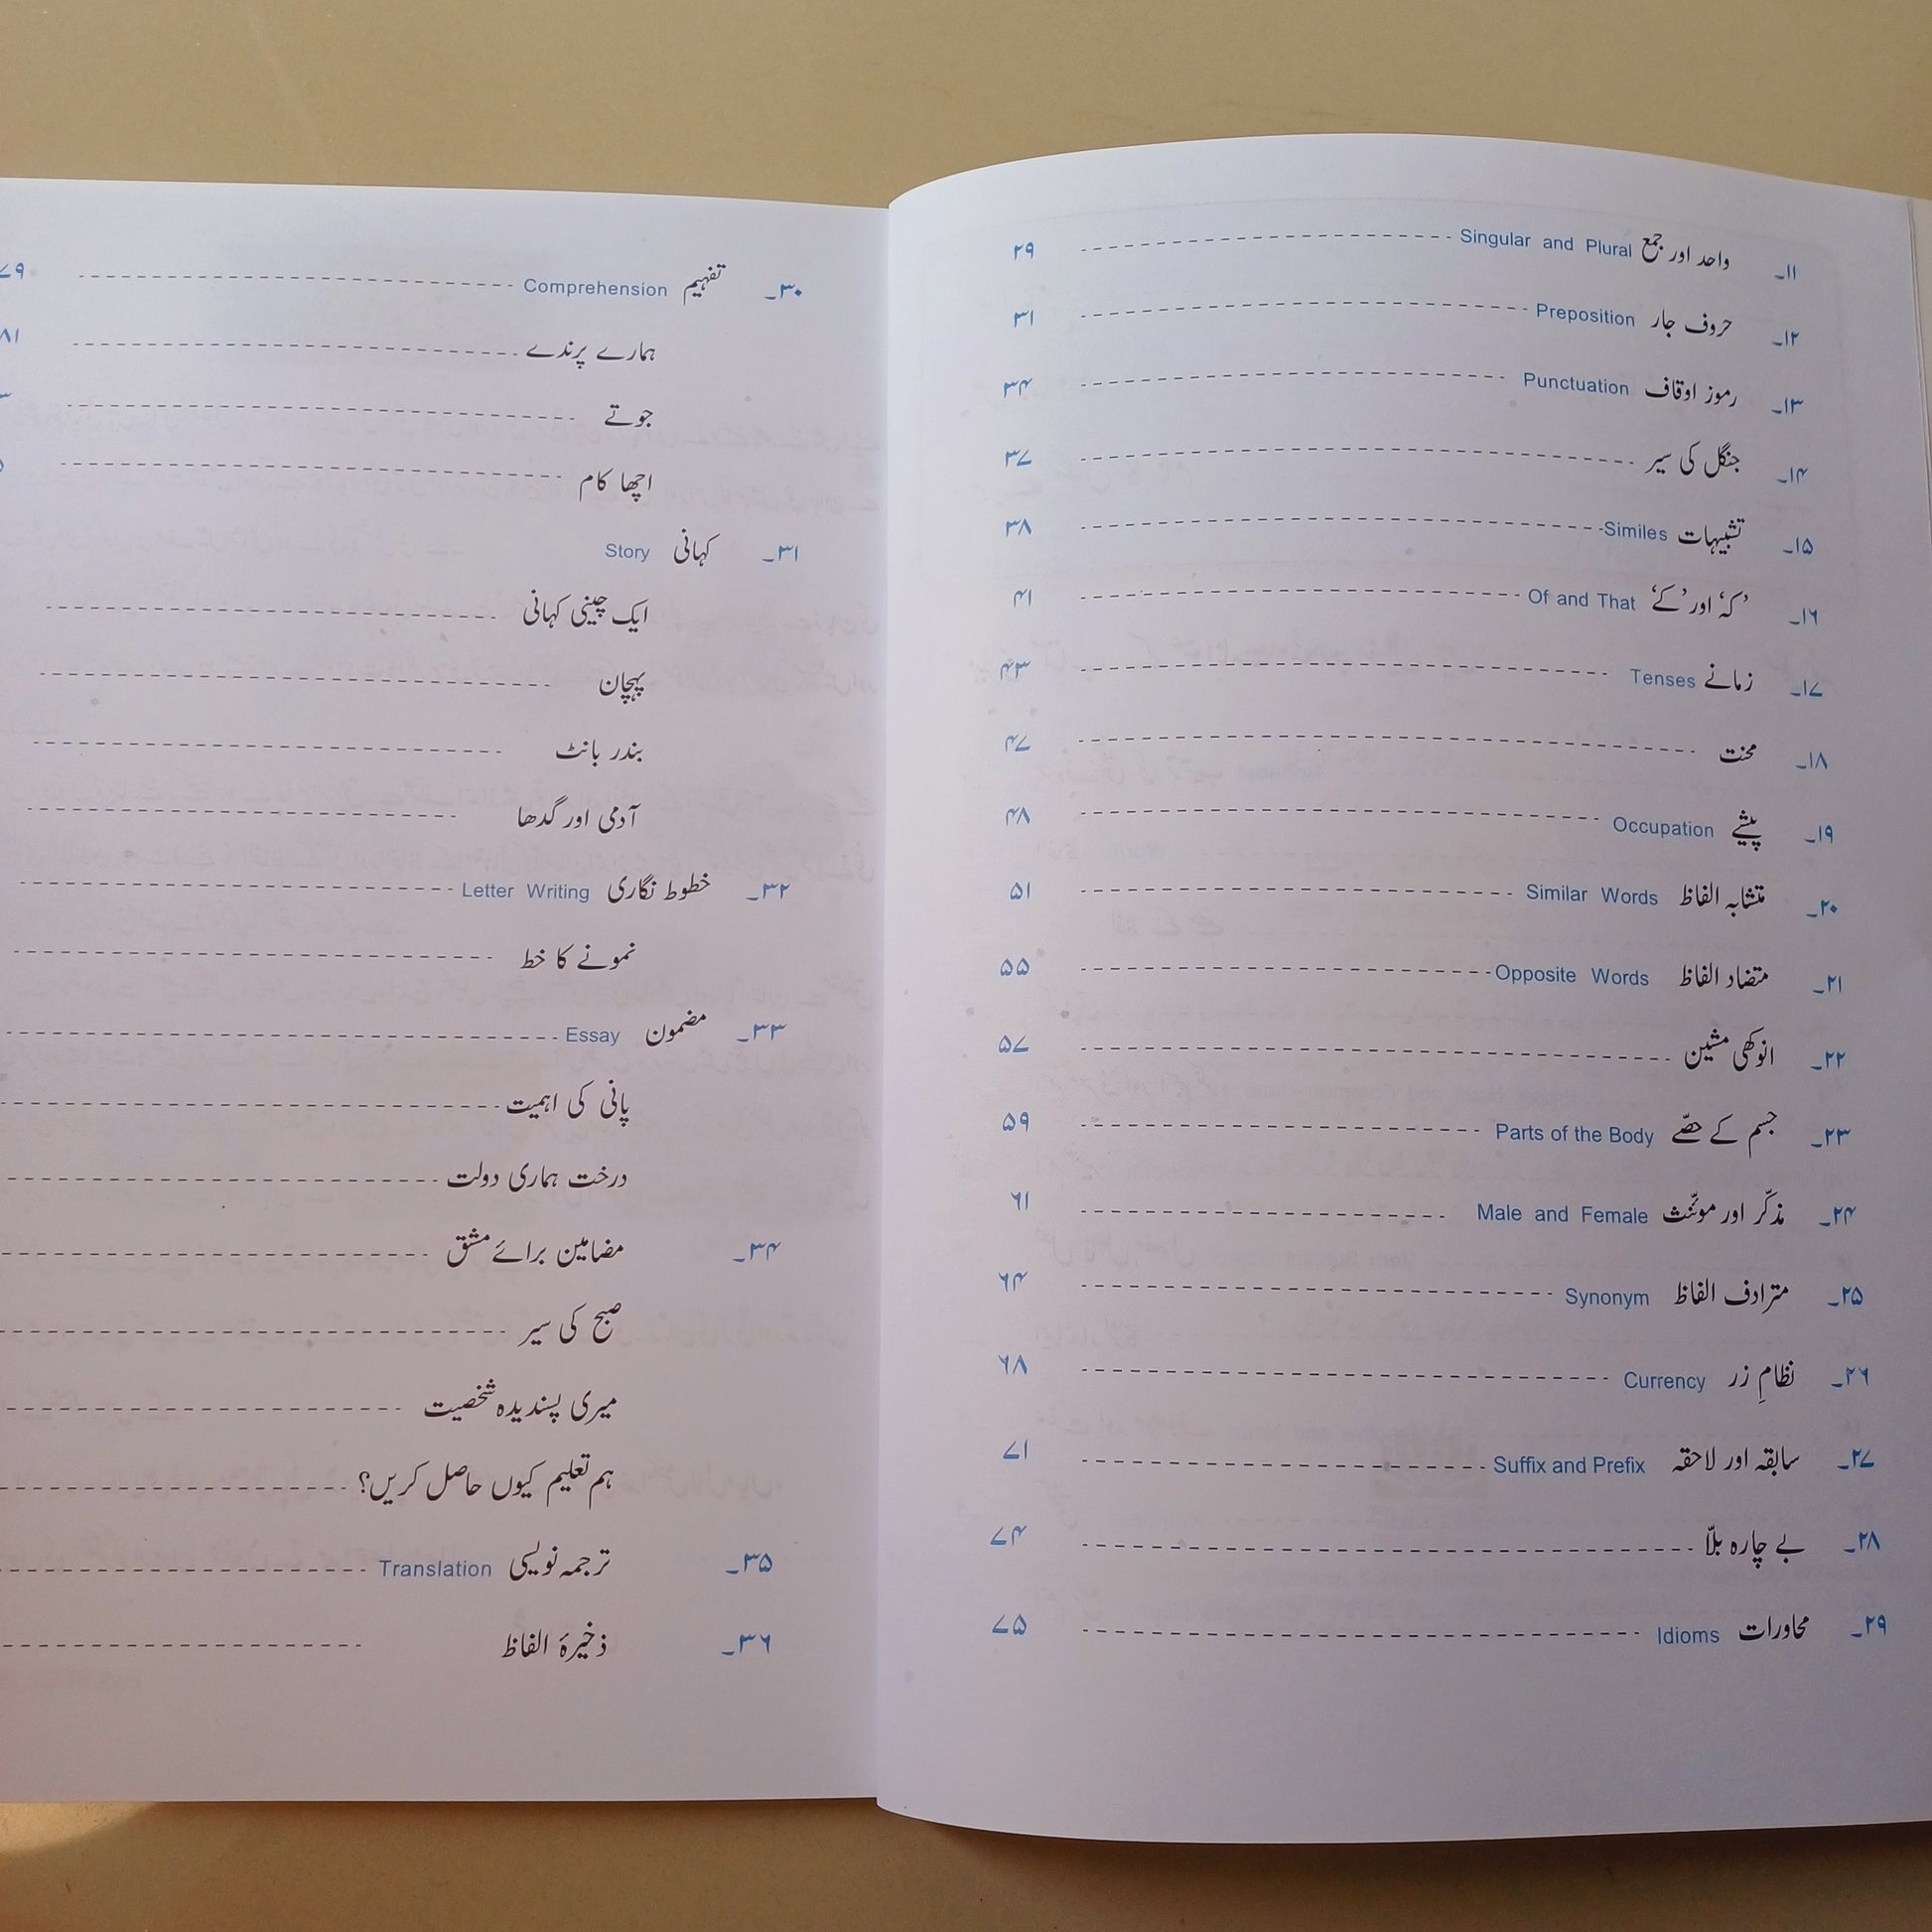 ۱۱۔ واحد اور جمع Singular and Plural ۲۹
۱۲۔ حروف جار Preposition ۳۱
۱۳۔ رموز اوقاف Punctuation ۳۴
۱۴۔ جنگل کی سیر ۳۷
۱۵۔ تشبیہات Similes ۳۸
۱۶۔ ’کہ‘ اور ’کے‘ Of and That ۴۱
۱۷۔ زمانے Tenses ۴۳
۱۸۔ محنت ۴۷
۱۹۔ پیشے Occupation ۴۸
۲۰۔ متشابہ الفاظ Similar Words ۵۱
۲۱۔ متضاد الفاظ Opposite Words ۵۵
۲۲۔ انوکھی مشین ۵۷
۲۳۔ جسم کے حصّے Parts of the Body ۵۹
۲۴۔ مذکّر اور مونّث Male and Female ۶۱
۲۵۔ مترادف الفاظ Synonym ۶۴
۲۶۔ نظامِ زر Currency ۶۸
۲۷۔ سابقہ اور لاحقہ Suffix and Prefix ۷۱
۲۸۔ بے چارہ بلّا ۷۴
۲۹۔ محاورات Idioms ۷۵
۳۰۔ تفہیم Comprehension ۷۹
ہمارے پرندے ۸۱
جوتے
اچھا کام
۳۱۔ کہانی Story
ایک چینی کہانی
پہچان
بندر بانٹ
آدمی اور گدھا
۳۲۔ خطوط نگاری Letter Writing
نمونے کا خط
۳۳۔ مضمون Essay
پانی کی اہمیت
درخت ہماری دولت
۳۴۔ مضامین برائے مشق
صبح کی سیر
میری پسندیدہ شخصیت
ہم تعلیم کیوں حاصل کریں؟
۳۵۔ ترجمہ نویسی Translation
۳۶۔ ذخیرۂ الفاظ